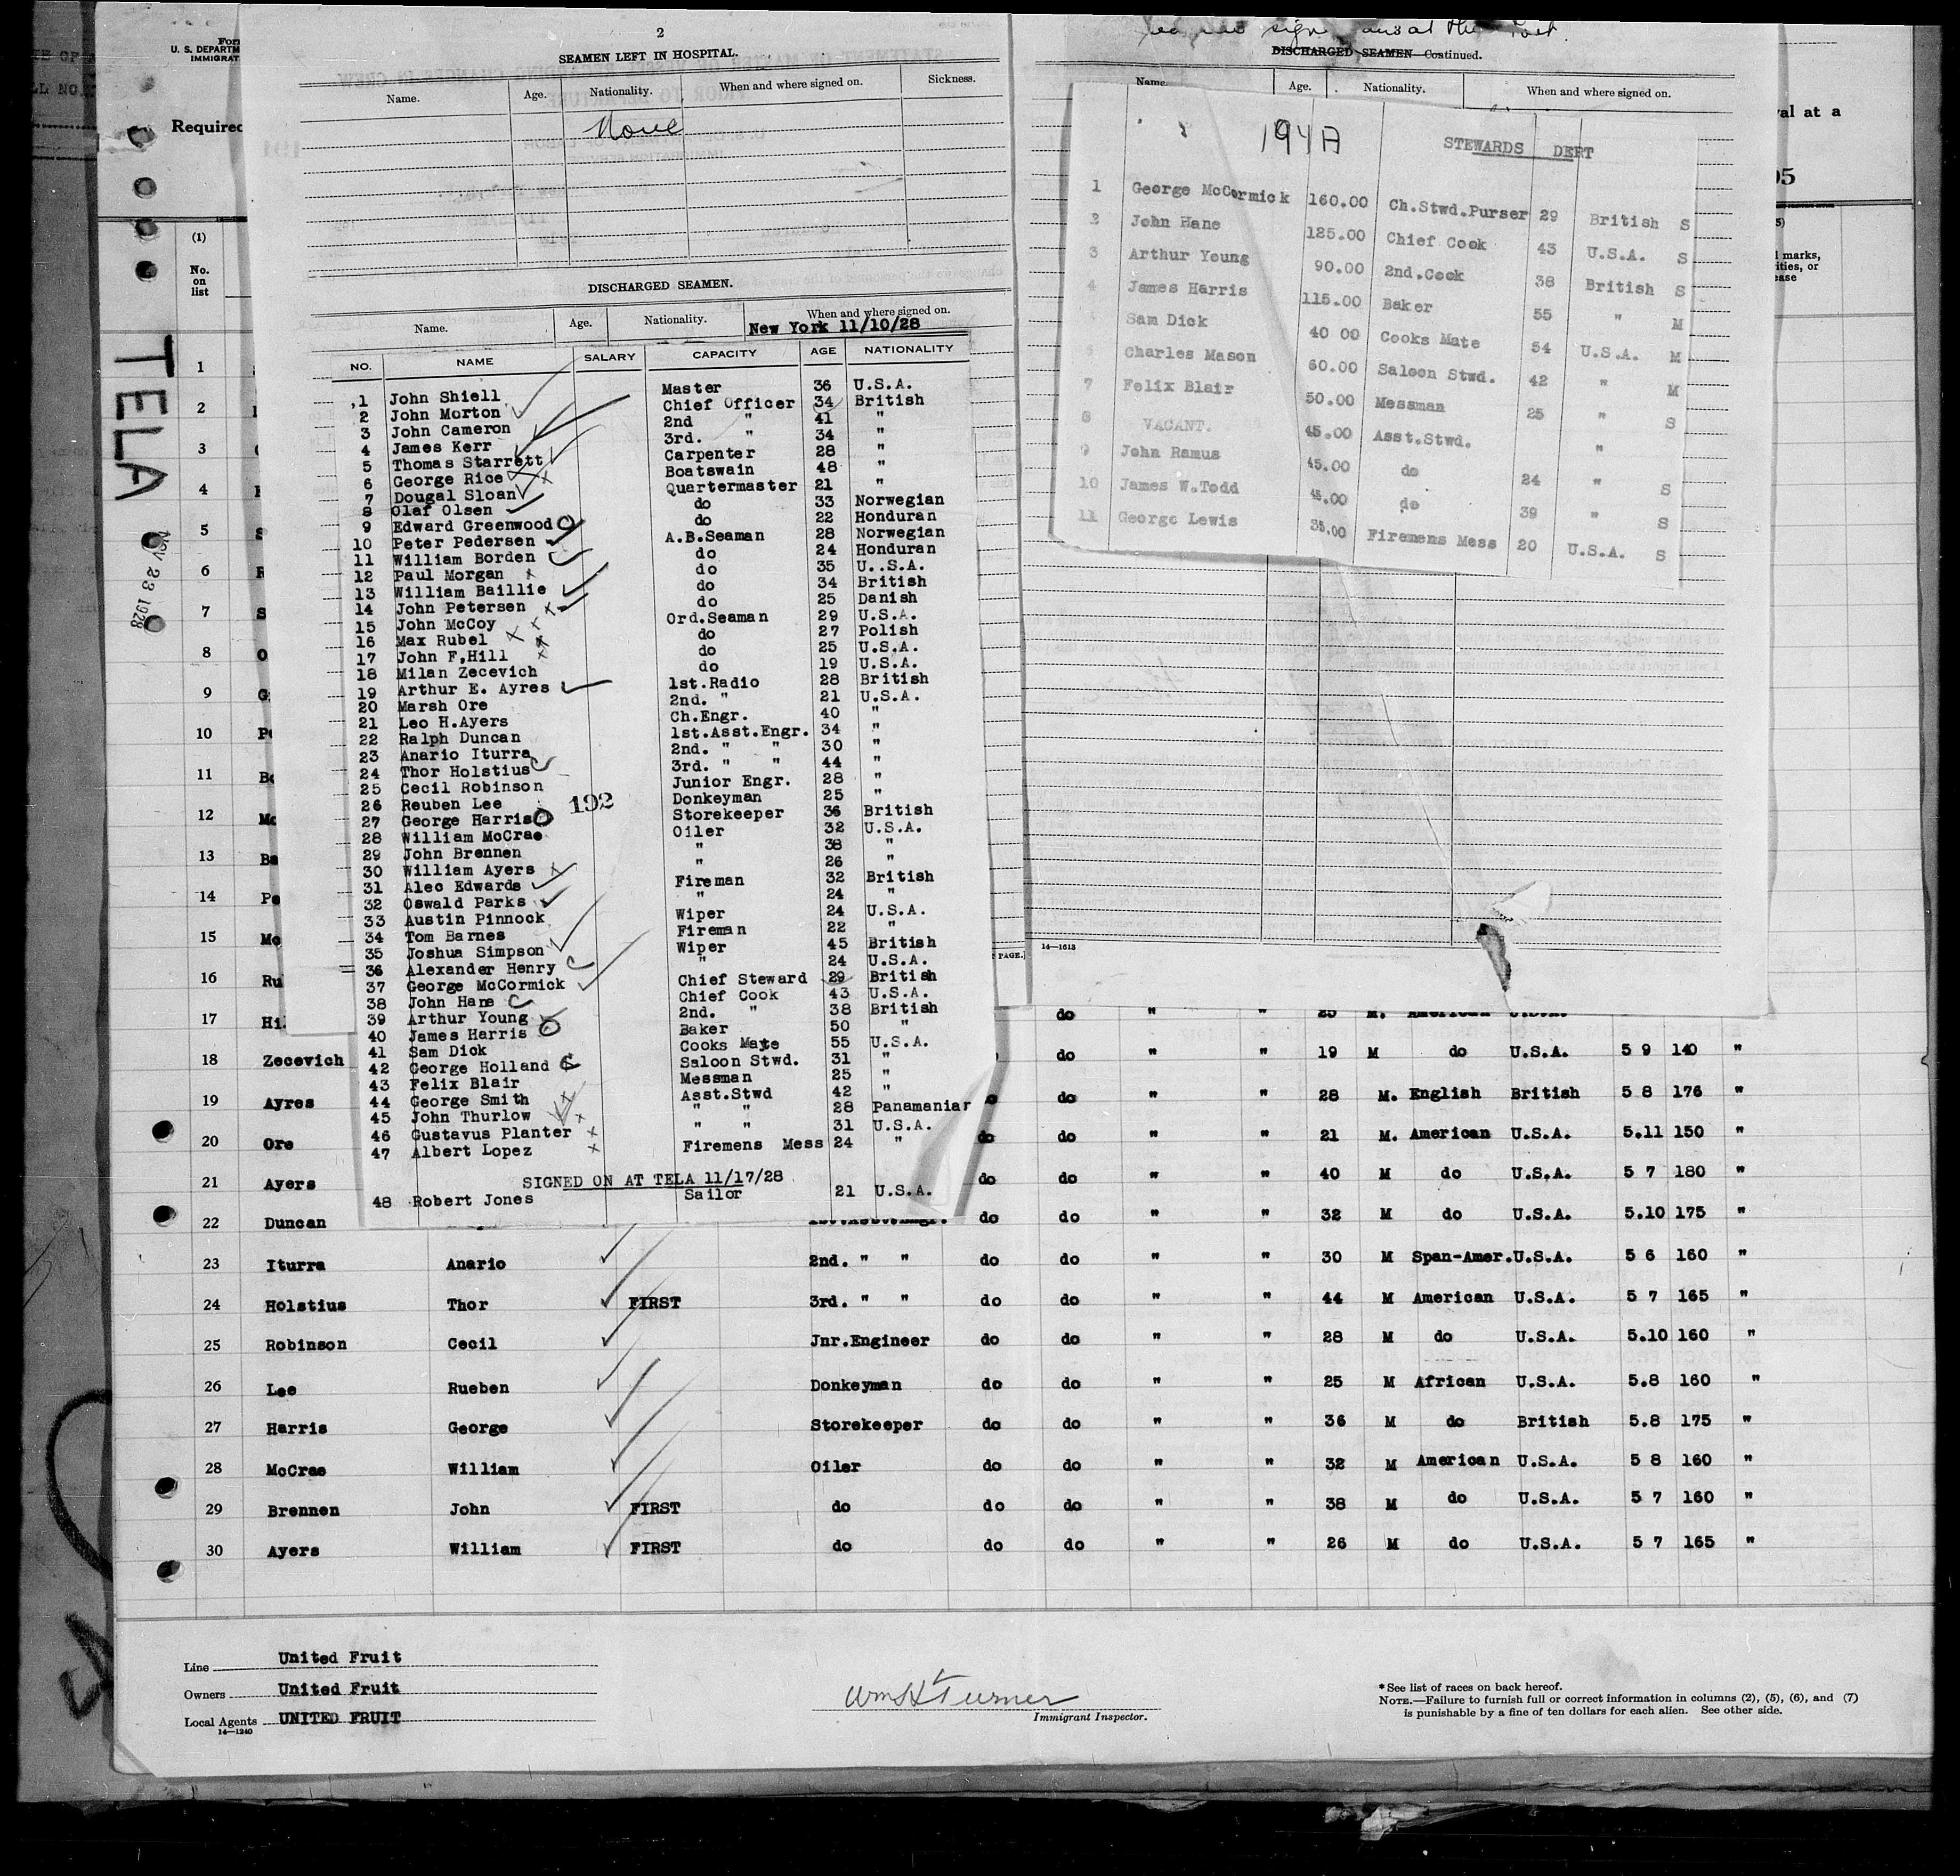 For
U. S. DEPARTM
IMMIGRAT
Required
(1)
No.
on
list
TELA
NOV 23 1928
2
SEAMEN LEFT IN HOSPITAL.
Name. Age. Nationality. When and where signed on. Sickness.
None
DISCHARGED SEAMEN.
Name. Age. Nationality. When and where signed on.
New York 11/10/28
NO. NAME SALARY CAPACITY AGE NATIONALITY
1 John Shiell Master 36 U.S.A.
2 John Morton Chief Officer 34 British
3 John Cameron 2nd " 41 "
4 James Kerr 3rd. " 34 "
5 Thomas Starrett Carpenter 28 "
6 George Rice Boatswain 48 "
7 Dougal Sloan Quartermaster 21 "
8 Olaf Olsen do 33 Norwegian
9 Edward Greenwood do 22 Honduran
10 Peter Pedersen A.B.Seaman 28 Norwegian
11 William Borden do 24 Honduran
12 Paul Morgan do 35 U..S.A.
13 William Baillie do 34 British
14 John Petersen do 25 Danish
15 John McCoy Ord.Seaman 29 U.S.A.
16 Max Rubel do 27 Polish
17 John F,Hill do 25 U.S.A.
18 Milan Zecevich do 19 U.S.A.
19 Arthur E. Ayres 1st.Radio 28 British
20 Marsh Ore 2nd. " 21 U.S.A.
21 Leo H.Ayers Ch.Engr. 40 "
22 Ralph Duncan 1st.Asst.Engr. 34 "
23 Anario Iturra 2nd. " " 30 "
24 Thor Holstius 3rd. " " 44 "
25 Cecil Robinson Junior Engr. 28 "
26 Reuben Lee Donkeyman 25 "
192
27 George Harris Storekeeper 36 British
28 William McCrae Oiler 32 U.S.A.
29 John Brennen " 38 "
30 William Ayers " 26 "
31 Alec Edwards Fireman 32 British
32 Oswald Parks " 24 "
33 Austin Pinnock Wiper 24 U.S.A.
34 Tom Barnes Fireman 22 "
35 Joshua Simpson Wiper 45 British
36 Alexander Henry " 24 U.S.A.
37 George McCormick Chief Steward 29 British
38 John Hane Chief Cook 43 U.S.A.
39 Arthur Young 2nd. " 38 British
40 James Harris Baker 50 "
41 Sam Dick Cooks Mate 55 U.S.A.
42 George Holland Saloon Stwd. 31 "
43 Felix Blair Messman 25 "
44 George Smith Asst.Stwd 42 "
45 John Thurlow " " 28 Panamanian
46 Gustavus Planter " " 31 U.S.A.
47 Albert Lopez Firemens Mess 24 "
SIGNED ON AT TELA 11/17/28
48 Robert Jones Sailor 21 U.S.A.
DISCHARGED SEAMEN—Continued.
Name. Age. Nationality. When and where signed on.
194A
STEWARDS DEPT
1 George McCormick 160.00 Ch.Stwd.Purser 29 British S
2 John Hane 125.00 Chief Cook 43 U.S.A. S
3 Arthur Young 90.00 2nd.Cook 38 British S
4 James Harris 115.00 Baker 55 " M
Sam Dick 40 00 Cooks Mate 54 U.S.A. M
Charles Mason 60.00 Saloon Stwd. 42 " M
7 Felix Blair 50.00 Messman 25 " S
8 VACANT. 45.00 Asst.Stwd. "
9 John Ramus 45.00 do 24 " S
10 James W.Todd 45.00 do 39 " S
11 George Lewis 35.00 Firemens Mess 20 U.S.A. S
14—1613
PAGE.]
val at a
05
marks,
1
2
3
4
5
6
7
8
9
10
11
12
13
14
15
16 Ru
17 Hi do " " 25 M. American U.S.A.
18 Zecevich do " " 19 M do U.S.A. 5 9 140 "
19 Ayres do do " " 28 M. English British 5 8 176 "
20 Ore do do " " 21 M. American U.S.A. 5.11 150 "
21 Ayers do do " " 40 M do U.S.A. 5 7 180 "
22 Duncan 1st.Asst.Engr. do do " " 32 M do U.S.A. 5.10 175 "
23 Iturra Anario 2nd. " " do do " " 30 M Span-Amer. U.S.A. 5 6 160 "
24 Holstius Thor FIRST 3rd. " " do do " " 44 M American U.S.A. 5 7 165 "
25 Robinson Cecil Jnr.Engineer do do " " 28 M do U.S.A. 5.10 160 "
26 Lee Rueben Donkeyman do do " " 25 M African U.S.A. 5.8 160 "
27 Harris George Storekeeper do do " " 36 M do British 5.8 175 "
28 McCrae William Oiler do do " " 32 M American U.S.A. 5 8 160 "
29 Brennen John FIRST do do do " " 38 M do U.S.A. 5 7 160 "
30 Ayers William FIRST do do do " " 26 M do U.S.A. 5 7 165 "
Line United Fruit
Owners United Fruit
Local Agents UNITED FRUIT
14—1240
Wm H Turner
Immigrant Inspector.
*See list of races on back hereof.
NOTE.—Failure to furnish full or correct information in columns (2), (5), (6), and (7)
is punishable by a fine of ten dollars for each alien. See other side.